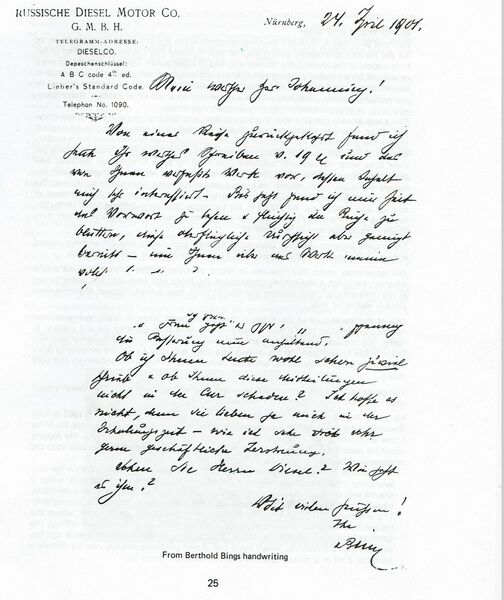 RUSSISCHE DIESEL MOTOR CO.
G. M. B. H.
TELEGRAMM-ADRESSE:
DIESELCO.
Depeschenschlüssel:
A B C code 4th ed.
Lieber's Standard Code.
Telephon No. 1090.
Nürnberg, 24. April 1901.
Mein werther Herr Johanning!
Von einer Reise zurückgekehrt fand ich
Ihr werthes Schreiben v. 19 und das
von Ihnen verfasste Werk vor, dessen Inhalt
mich sehr interessirt. Bis jetzt fand ich nur Zeit
das Vorwort zu lesen & flüchtig die Reihe zu
diese oberflächliche Durchsicht aber genügt
bereits – um Ihnen über das Werk meine
Ob ich Ihnen heute wohl schon zuviel
schreibe & ob Ihnen diese Mitteilungen
nicht in der Cur schaden? Ich hoffe es
nicht, denn Sie lieben ja auch in der
Erholungszeit – wie ich sehr
gern geschäftliche Zerstreuung.
Sehen Sie Herrn Diesel? Wie geht
es ihm?
Mit vielen Grüssen!
Ihr
Bing
From Berthold Bings handwriting
25